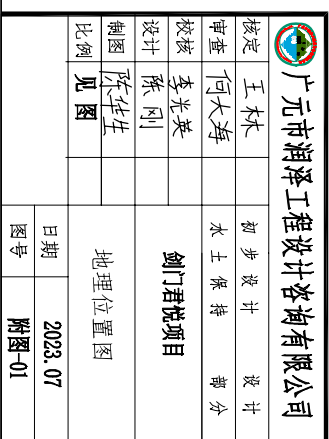 广元市润泽工程设计咨询有限公司
核定 王林 初步设计 设计
审查 何大海 水土保持 部分
校核 李光英 剑门君悦项目
设计 陈刚
制图 陈华生 地理位置图
比例 见图 日期 2023.07
图号 附图-01